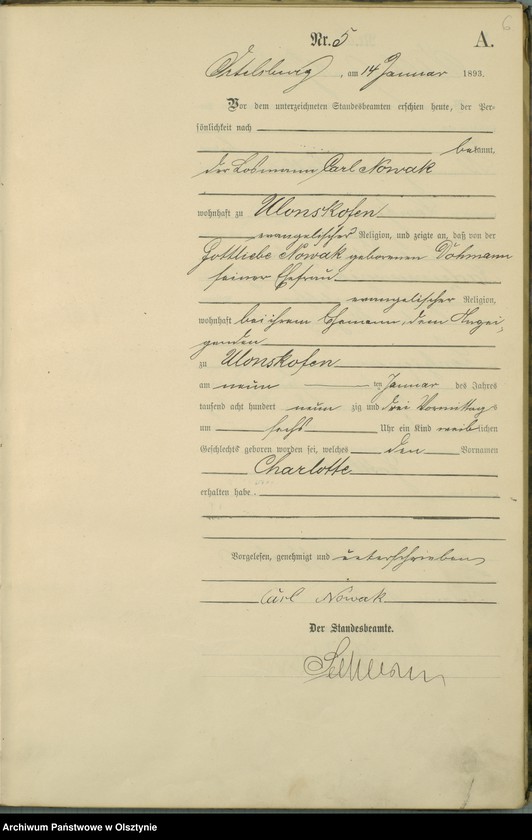 6
Nr. 5
A.
Ortelsburg, am 14 Januar 1893.
Vor dem unterzeichneten Standesbeamten erschien heute, der Per-
sönlichkeit nach
bekannt,
der Losmann Carl Nowak
wohnhaft zu Ulonskofen
evangelischer Religion, und zeigte an, daß von der
Gottliebe Nowak geborenen Dohmann
seiner Ehefrau
evangelischer Religion,
wohnhaft bei ihrem Ehemann, dem Anzei-
genden
zu Ulonskofen
am neun ten Januar des Jahres
tausend acht hundert neun zig und drei Vormittags
um sechs Uhr ein Kind weiblichen
Geschlechts geboren worden sei, welches den Vornamen
Charlotte
erhalten habe.
Vorgelesen, genehmigt und unterschrieben
Carl Nowak
Der Standesbeamte.
Archiwum Państwowe w Olsztynie